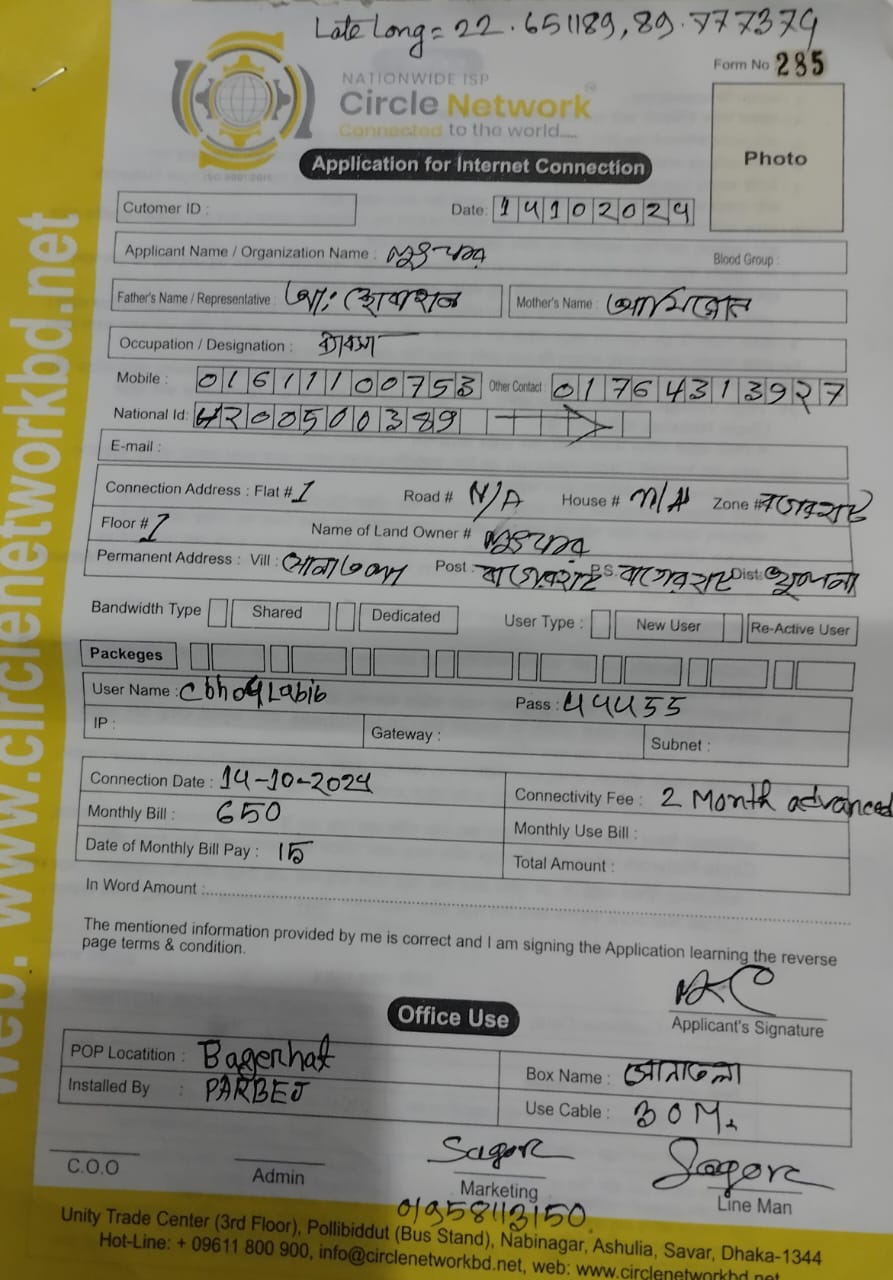 Late Long = 22.651189, 89.777379
Form No 285
NATIONWIDE ISP
Circle Network
Connected to the world....
ISO 9001:2015
Photo
Application for Internet Connection
Cutomer ID :
Date: 14102024
Applicant Name / Organization Name :
Blood Group :
Father's Name / Representative : আ:
Mother's Name :
Occupation / Designation : ব্যবসা
Mobile : 01611100753 Other Contact : 01764313927
National Id: 4200500389
E-mail :
Connection Address : Flat # 1 Road # N/A House # N/A Zone # বাগেরহাট
Floor # 1 Name of Land Owner #
Permanent Address : Vill : সোনাতলা Post : বাগেরহাট P.S. বাগেরহাট Dist: খুলনা
Bandwidth Type Shared Dedicated User Type : New User Re-Active User
Packeges
User Name : cbh09Labib Pass : 44455
IP : Gateway : Subnet :
Connection Date : 14-10-2024 Connectivity Fee : 2 Month advanced
Monthly Bill : 650 Monthly Use Bill :
Date of Monthly Bill Pay : 15 Total Amount :
In Word Amount :
The mentioned information provided by me is correct and I am signing the Application learning the reverse
page terms & condition.
Applicant's Signature
Office Use
POP Locatition : Bagerhat Box Name : সোনাতলা
Installed By : PARBEJ Use Cable : 30 M.
Sagor Sagor
C.O.O Admin Marketing Line Man
01958113150
Unity Trade Center (3rd Floor), Pollibiddut (Bus Stand), Nabinagar, Ashulia, Savar, Dhaka-1344
Hot-Line: + 09611 800 900, info@circlenetworkbd.net, web: www.circlenetworkbd.net
web: www.circlenetworkbd.net